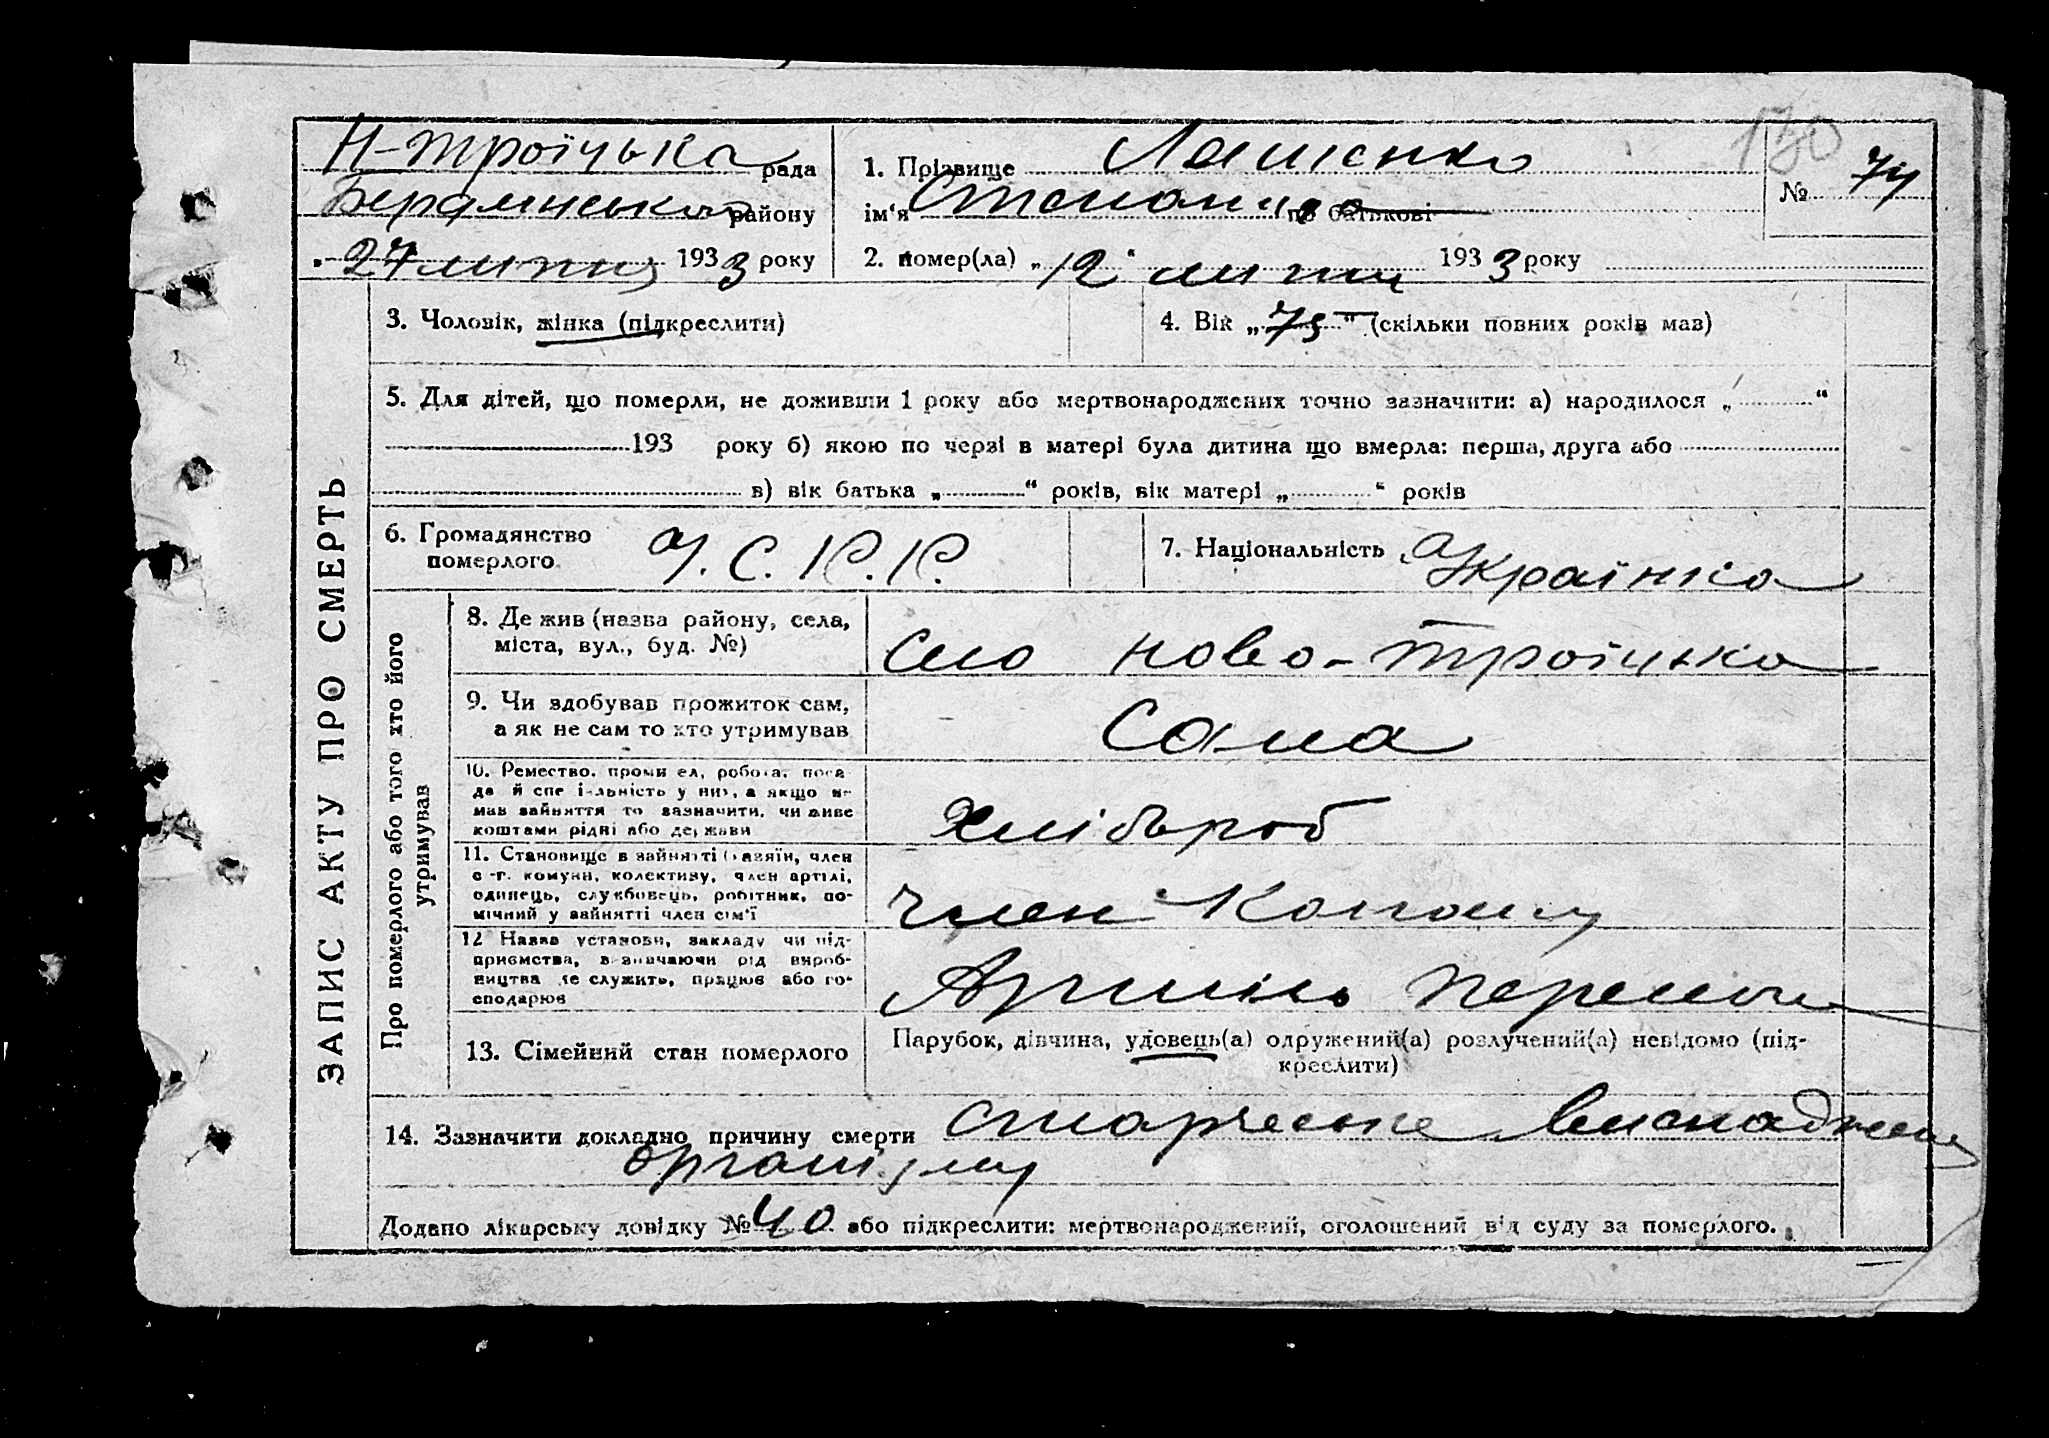 130
Н-троїцька рада
Бердянського району
27 липня 1933 року
1. Прізвище Лященко
ім'я Степанида по батькові
№ 74
2. помер(ла) „12“ липня 1933 року
ЗАПИС АКТУ ПРО СМЕРТЬ
3. Чоловік, жінка (підкреслити)
4. Вік „75“ (скільки повних років мав)
5. Для дітей, що померли, не доживши 1 року або мертвонароджених точно зазначити: а) народилося „ “
193 року б) якою по черзі в матері була дитина що вмерла: перша, друга або
в) вік батька „ “ років, вік матері „ “ років
6. Громадянство
померлого
У.С.Р.Р.
7. Національність Українка
Про померлого або того хто його
утримував
8. Де жив (назва району, села,
міста, вул., буд. №)
село Ново-Троїцька
9. Чи здобував прожиток сам,
а як не сам то хто утримував
Сама
10. Ремество, промисел, робота, поса
да й спеціальність у них, а якщо не
мав зайняття то зазначити, чи живе
коштами рідні або держави
Хлібороб
11. Становище в зайнятті (хазяїн, член
с-г. комуни, колективу, член артілі,
одинець, службовець, робітник, по-
мічний у зайнятті член сім'ї
член
12 Назва установи, закладу чи під-
приємства, визначаючи рід вироб-
ництва де служить, працює або го-
сподарює
Артіль
13. Сімейний стан померлого
Парубок, дівчина, удовець(а) одружений(а) розлучений(а) невідомо (під-
креслити)
14. Зазначити докладно причину смерти старческе виснаження
організму
Додано лікарську довідку № 40 або підкреслити: мертвонароджений, оголошений від суду за померлого.